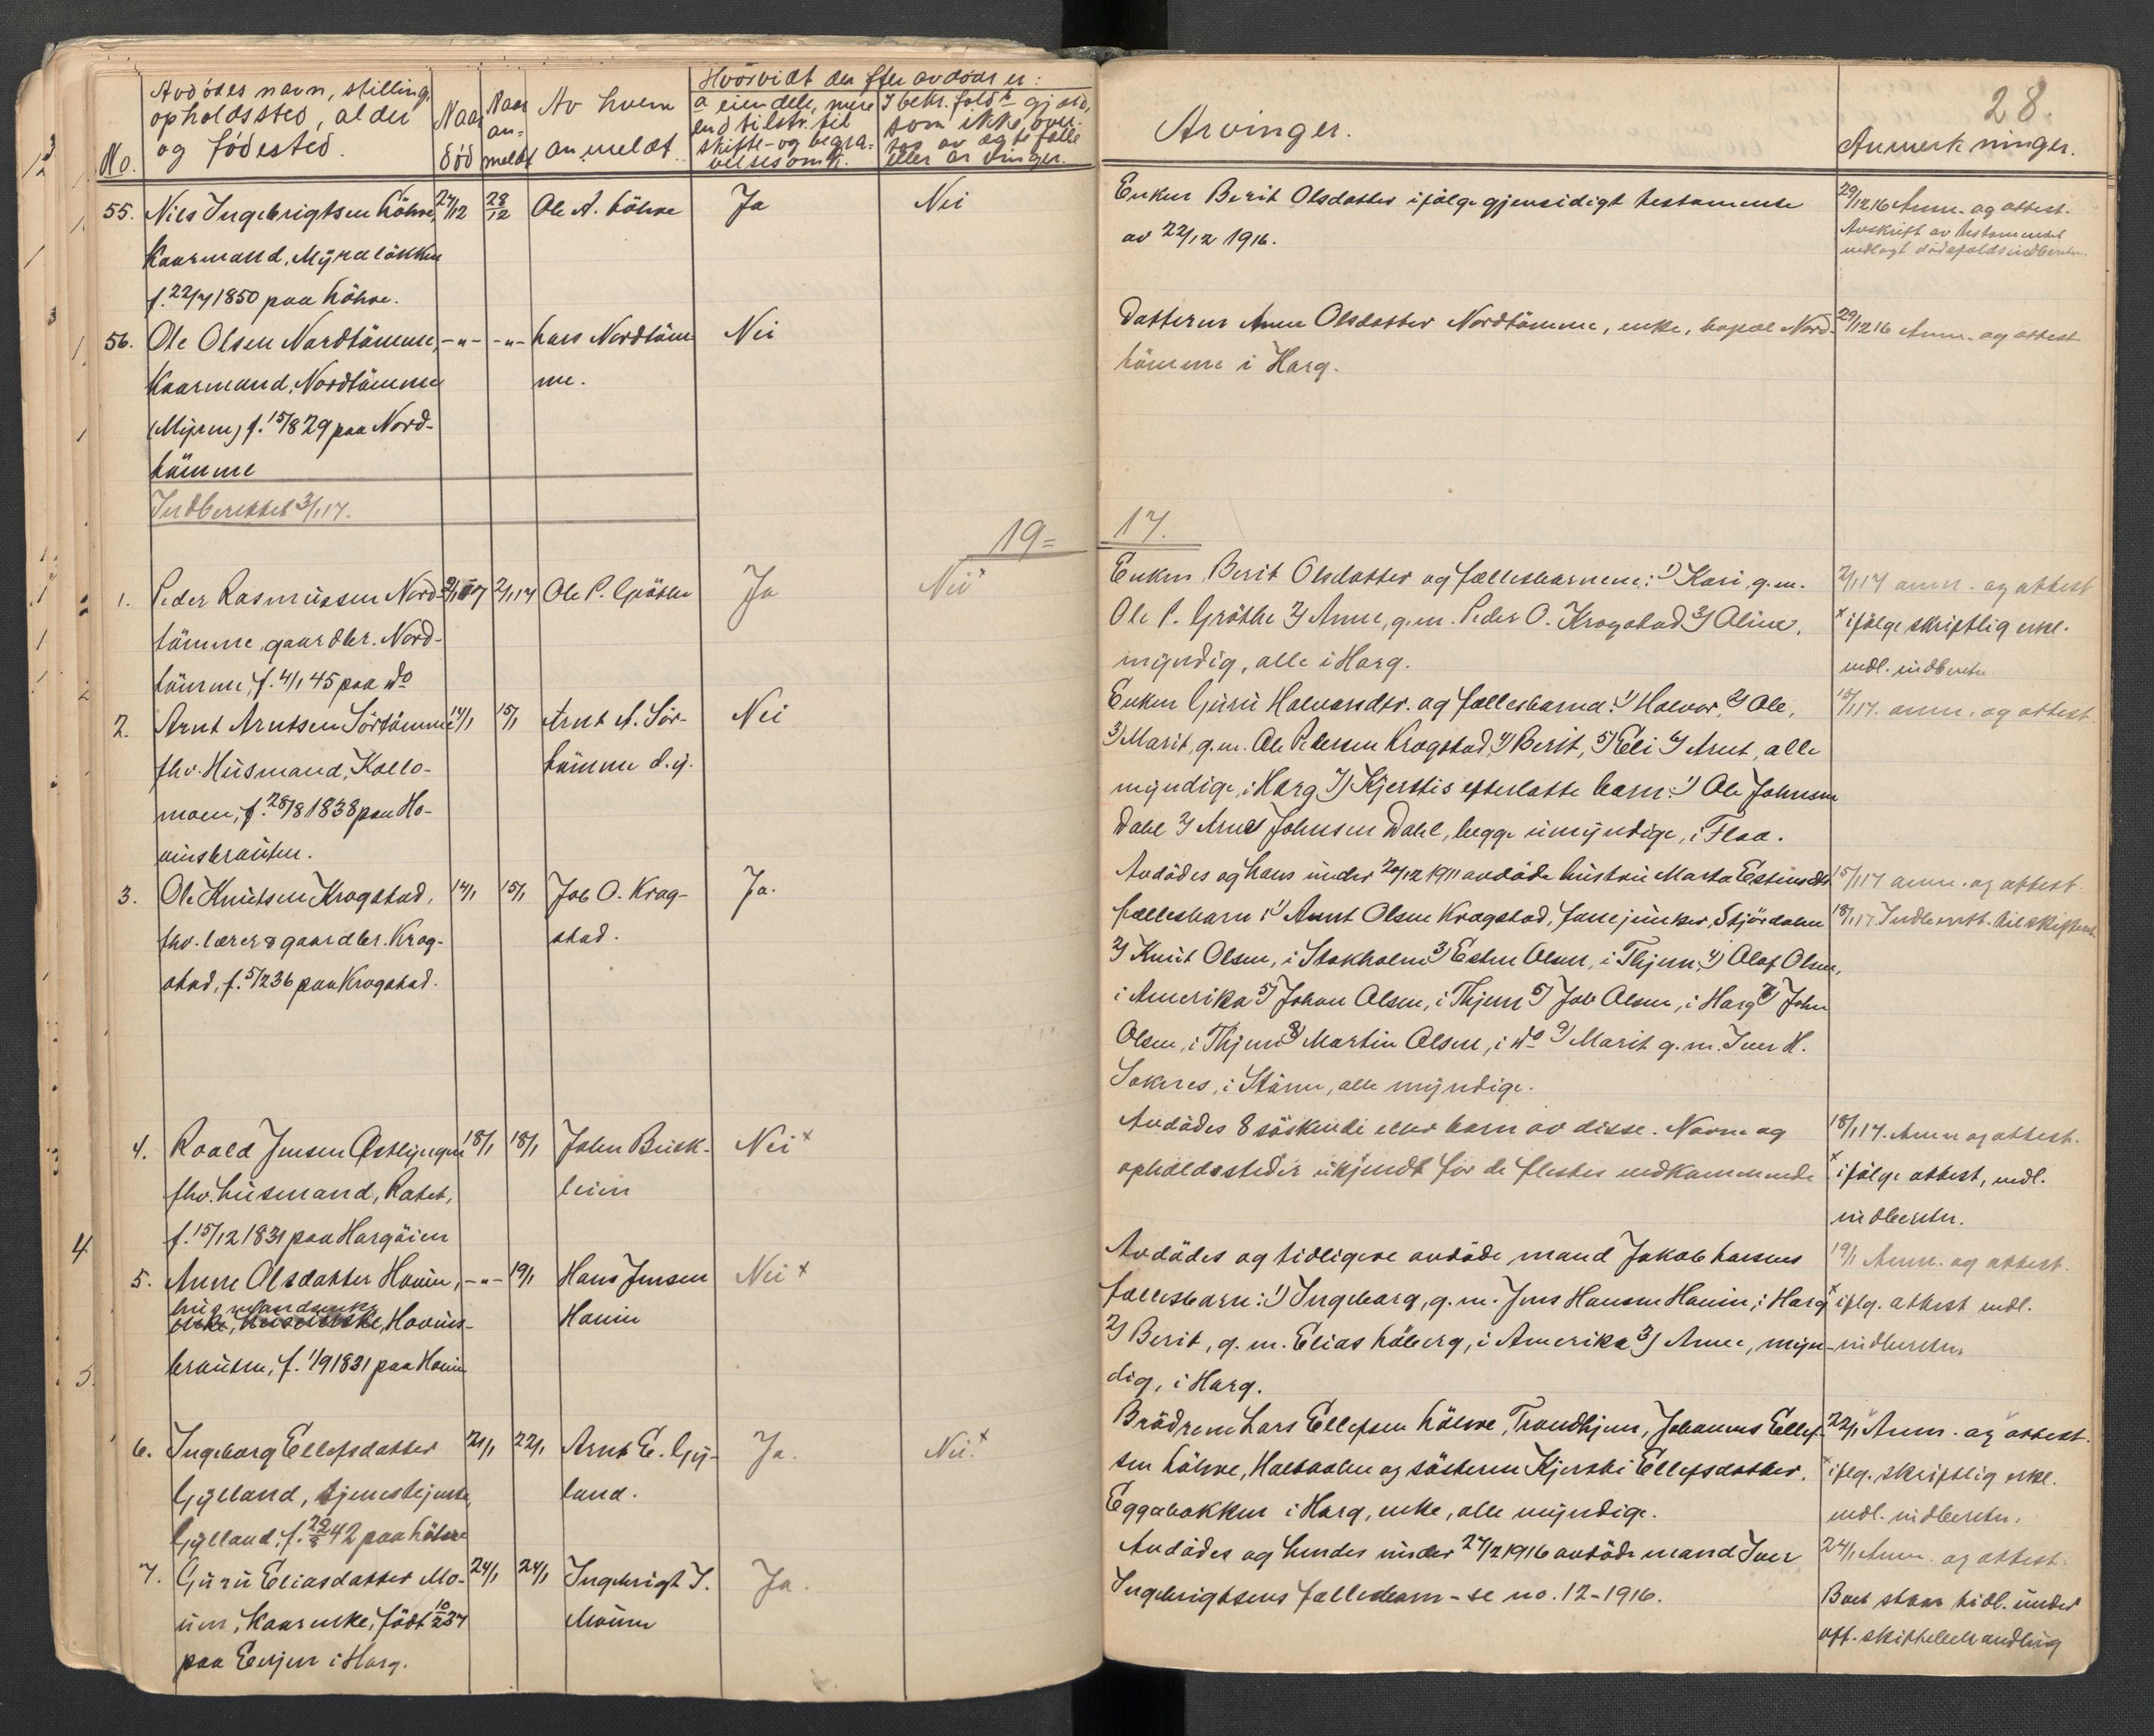 Avdödes navn, stilling,
opholdssted, alder
og födested.
No.
Naar
död
Naar
an-
meldt
Av hvem
anmeldt
Hvorvidt der efter avdöde er:
a eiendele, mere
end tilstr. til
skifte- og begra-
velsesomk.
som ikke over-
tas av ægtefælle
eller arvinger.
Arvinger.
28.
Anmerkninger.
55. Nils Ingebrigtsen Löhre, 27/12 28/12 Ole A. Löhre Ja Nei
Kaarmand, Myraløkken
f. 22/7 1850 paa Löhre.
Enken Berit Olsdatter ifölge gjensidigt testamente
av 22/12 1916.
29/12 16 Anm. og attest.
Avskrift av testamentet
vedlagt dödsfaldsindberetn.
56. Ole Olsen Nordtömme, -"- -"- Lars Nordtöm- Nei
Kaarmand, Nordtömme me.
(Myren) f. 15/8 29 paa Nord-
tömme
Datteren Anne Olsdatter Nordtömme, enke, bopæl Nord-
tömme i Horg.
29/12 16 Anm. og attest
Indberettet 3/1 17.
19=17.
1. Peder Rasmussen Nord- 2/1 17 2/1 17 Ole P. Gröthe Ja Nei x
tömme, gaardbr. Nord-
tömme, f. 4/1 45 paa do
Enken Berit Olsdatter og fællesbarnene: 1) Kari, g.m.
Ole P. Gröthe 2) Anne, g.m. Peder O. Krogstad 3) Oline,
myndig, alle i Horg.
2/1 17 anm. og attest
x ifölge skriftlig erkl.
vedl. indberetn.
2. Arnt Arntsen Sörtömme 14/1 15/1 Arnt A. Sör- Nei
fhv. Husmand, tömme d.y.
moen, f. 28/8 1838 paa Ho-
vinsbrauten.
Enken Guru Halvorsdtr. og fællesbarna: 1) Halvor, 2) Ole,
3) Marit, g.m. Ole Pedersen Krogstad, 4) Berit, 5) Eli 6) Arnt, alle
myndige, i Horg 7) Kjerstis efterlatte barn: 1) Ole Johnsen
Dahl 2) Arnt Johnsen Dahl, begge umyndige, i Flaa.
15/1 17. anm. og attest.
3. Ole Knutsen Krogstad, 14/1 15/1 Job O. Krog- Ja.
fhv. lærer & gaardbr. Krog- stad.
stad, f. 5/2 36 paa Krogstad.
Avdödes og hans under 20/12 1911 avdöde hustru Marta Estensdtr
fællesbarn: 1) Arnt Olsen Krogstad, fanejunker, Stjördalen
2) Knut Olsen, i Stokholm 3) Esten Olsen, i Thjem, 4) Olaf Olsen,
i Amerika 5) Johan Olsen, i Thjem 6) Job Olsen, i Horg 7) John
Olsen, i Thjem 8) Martin Olsen, i do 9) Marit g.m. Iver H.
Soknes, i Stören, alle myndige.
15/1 17 anm. og attest.
18/1 17 Indberett. til skifteret.
4. Roald Jensen Östlyngen 18/1 18/1 John Busk- Nei x
fhv. husmand, Ratet, leien
f. 15/12 1831 paa Horgöien
Avdödes 8 söskende eller barn av disse. Navne og
opholdssteder ukjendt for de flestes vedkommende
18/1 17. Anm. og attest.
x ifölge attest, vedl.
indberetn.
5. Anne Olsdatter Hovin, -"- 19/1 Hans Jensen Nei x
husmandsenke, Hovins- Hovin
brauten, f. 1/9 1831 paa Hovin
Avdödes og tidligere avdöde mand Jakob Larsens
fællesbarn: 1) Ingeborg, g.m. Jens Hansen Hovin, i Horg
2) Berit, g.m. Elias Löberg, i Amerika 3) Anne, myn-
dig, i Horg.
19/1 Anm. og attest.
x iflg. attest vedl.
indberetn.
6. Ingeborg Ellefsdatter 21/1 22/1 Arnt E. Gyl- Ja. Nei. x
Gylland, tjenestejente, land.
Gylland, f. 42 paa Löhre
Brödrene Lars Ellefsen Löhre, Trondhjem, Johannes Ellef-
sen Löhre, Holtaalen og sösteren Kjersti Ellefsdatter,
Eggabakken i Horg, enke, alle myndige.
22/1 Anm. og attest.
x iflg. skriftlig erkl.
vedl. indberetn.
7. Guru Eliasdatter Mo- 24/1 24/1 Ingebrigt I. Ja.
um, Kaarenke, födt 10/2 37 Moum
paa Evjen i Horg.
Avdödes og hendes under 27/2 1916 avdöde mand Iver
Ingebrigtsens fællesbarn - se no. 12-1916.
24/1 Anm. og attest.
Boet staar tidl. under
off. skiftebehandling